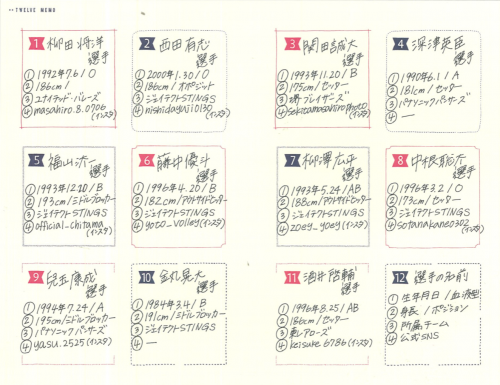 TWELVE MEMO
1 柳田将洋
選手
① 1992.7.6 / O
② 186cm /
③ ユナイテッド・バレーズ
④ masahiro.8.0706
(インスタ)
2 西田有志
選手
① 2000.1.30 / O
② 186cm / オポジット
③ ジェイテクトSTINGS
④ nishidayuji0130
(インスタ)
3 関田誠大
選手
① 1993.11.20 / B
② 175cm / セッター
③ 堺ブレイザーズ
④ sekitamasahirophoto
(インスタ)
4 深津英臣
選手
① 1990.6.1 / A
② 181cm / セッター
③ パナソニックパンサーズ
④ ー
5 福山汰一
選手
① 1993.12.10 / B
② 193cm / ミドルブロッカー
③ ジェイテクトSTINGS
④ official_chitama
(インスタ)
6 藤中優斗
選手
① 1996.4.20 / B
② 182cm / アウトサイドヒッター
③ ジェイテクトSTINGS
④ yuto_volley (インスタ)
7 柳澤広平
選手
① 1993.5.24 / AB
② 188cm / アウトサイドヒッター
③ ジェイテクトSTINGS
④ zoey_yoey (インスタ)
8 中根聡太
選手
① 1996.3.2 / O
② 173cm / セッター
③ ジェイテクトSTINGS
④ sotanakane0302
(インスタ)
9 兒玉康成
選手
① 1994.7.24 / A
② 195cm / ミドルブロッカー
③ パナソニックパンサーズ
④ yasu.2525 (インスタ)
10 金丸晃大
選手
① 1984.3.4 / B
② 191cm / ミドルブロッカー
③ ジェイテクトSTINGS
④ ー
11 酒井啓輔
選手
① 1996.8.25 / AB
② 186cm / セッター
③ 東レアローズ
④ keisuke6786 (インスタ)
12 選手の名前
① 生年月日 / 血液型
② 身長 / ポジション
③ 所属チーム
④ 公式SNS